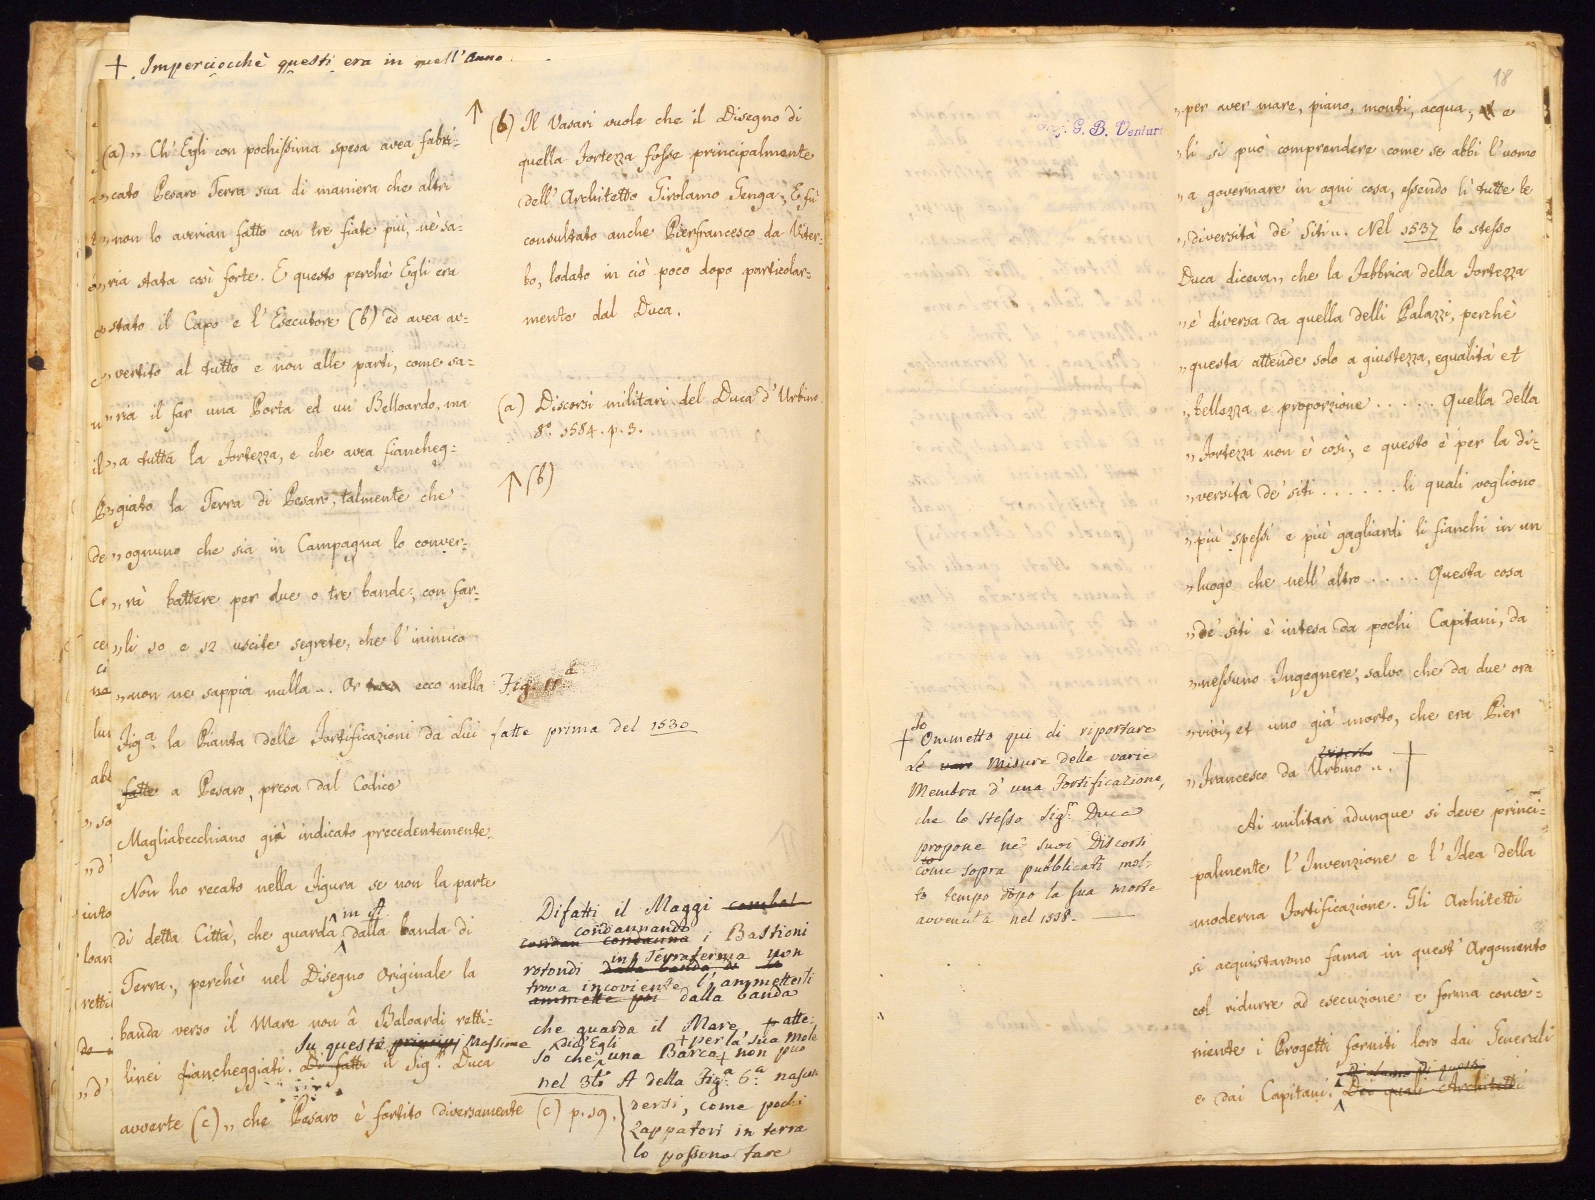 + Imperciocchè questi era in quell'Anno
(a) „ Ch'Egli con pochissima spesa avea fabri-
„cato Pesaro Terra sua di maniera che altri
„non lo averian fatto con tre fiate più, nè sa-
„ria stata così forte. E questo perchè Egli era
„stato il Capo e l'Esecutore (b) ed avea av-
„vertito al tutto e non alle parti, come sa-
„ria il far una Porta ed un Belloardo, ma
„a tutta la Fortezza, e che avea fiancheg-
„giato la Terra di Pesaro, talmente che
„ognuno che sia in Campagna lo conver-
„rà battere per due o tre bande, con far-
„li 10 e 12 uscite segrete, che l'inimico
„non ne sappia nulla„. Or ecco nella
Fig.a la Pianta delle Fortificazioni da lui
fatte a Pesaro, presa dal Codice
Magliabecchiano già indicato precedentemente.
Non ho recato nella Figura se non la parte
di detta Città, che guarda dalla banda di
Terra, perchè nel Disegno Originale la
banda verso il Mare non â Baloardi retti-
Su queste principj Massime
linei fiancheggiati. Di fatti il Sig.r Duca
avverte (c) „ che Pesaro è fortito diversamente
↑
(b) Il Vasari vuole che il Disegno di
quella Fortezza fosse principalmente
dell'Architetto Girolamo Genga; E fù
consultato anche Pierfrancesco da Viter-
bo, lodato in ciò poco dopo particolar-
mente dal Duca.
(a) Discorsi militari del Duca d'Urbino
8.o 1584. p. 3.
↑ (b)
Fig. 11a
fatte prima del 1530
Difatti il Maggi combat
condannando
condanna i Bastioni
in Terraferma non
rotondi dalla banda di
trova l'ammetterli
ammette poi dalla banda
che guarda il Mare, atte-
dic'Egli + per la sua mole
so che una Barca + non può
nel 3to A della Fig.a 6.a nascon
(c) p. 19.
dersi, come pochi
Zappatori in terra
lo possono fare
18
G. B. Venturi
„per aver mare, piano, monti, acqua, e
„li si può comprendere come se abbi l'uomo
„a governare in ogni cosa, essendo lì tutte le
„diversità de' Siti„. Nel 1537 lo stesso
Duca diceva„ che la Fabbrica della Fortezza
„è diversa da quella delli Palazzi, perchè
„questa attende solo a giustezza, egualità et
„bellezza e proporzione . . . . . Quella della
„Fortezza non è così; e questo è per la di-
„versità de' siti . . . . . . . li quali vogliono
„più spessi e più gagliardi li fianchi in un
„luogo che nell'altro . . . . Questa cosa
„de' siti è intesa da pochi Capitani, da
„nessuno Ingegnere, salvo che da due ora
„vivi, et uno già morto, che era Pier
Viterbo
„Francesco da Urbino„. +
Ai militari adunque si deve princi-
palmente l'Invenzione e l'Idea della
moderna Fortificazione. Gli Architetti
si acquistarono fama in quest'Argomento
col ridurre ad esecuzione e forma conve-
niente i Progetti forniti loro dai Generali
Di alcuno di questi
e dai Capitani. Dei quali Architetti
Io
+ Ommetto qui di riportare
le misure delle varie
Membra d'una Fortificazione,
che lo stesso Sig.r Duca
propone ne' suoi Discorsi
come sopra pubblicati mol-
to tempo dopo la sua morte
avvenuta nel 1538.